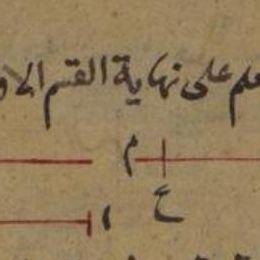 علم على نهاية القسم الا
م
ح
ا